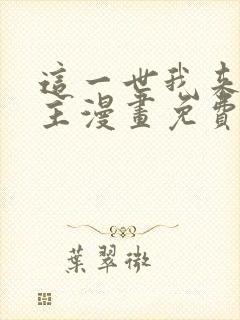 這一世我來
主漫畫免費
葉翠微